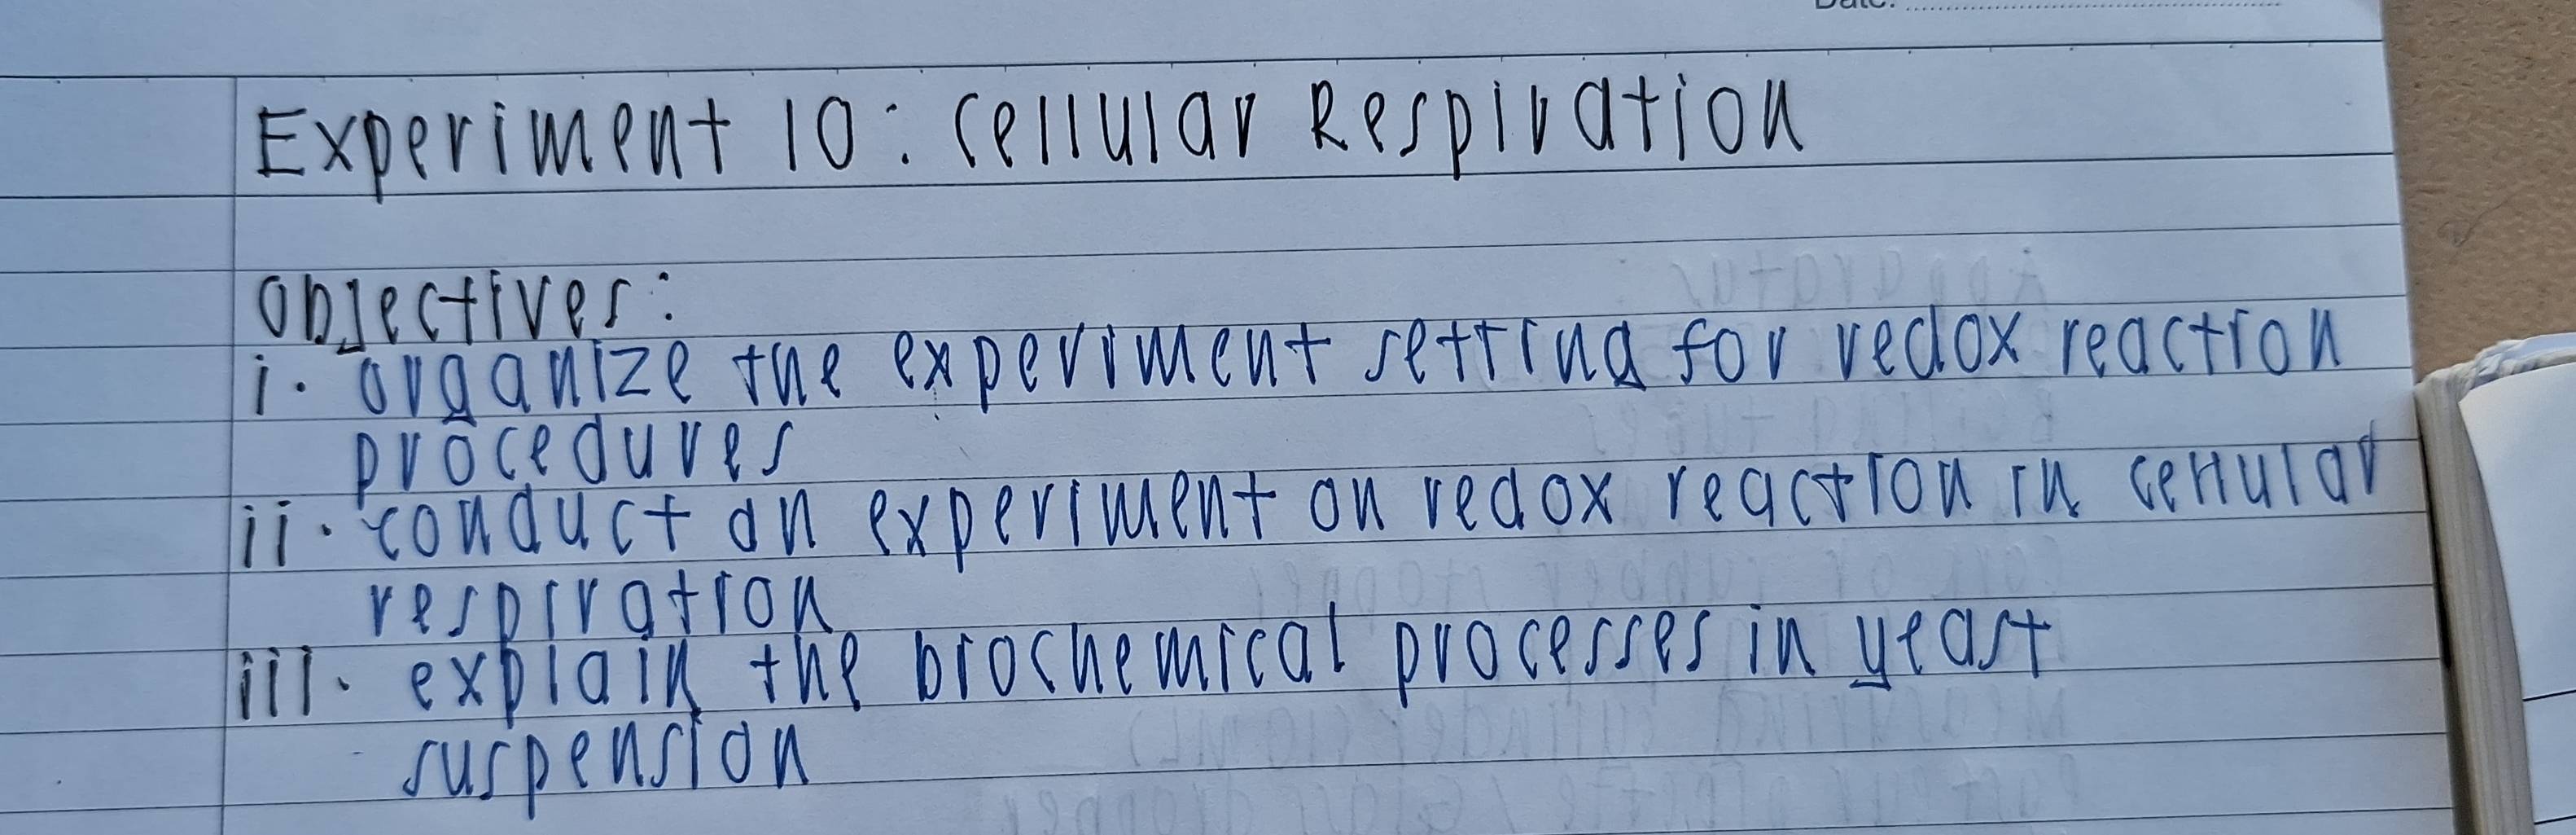 Date:
Experiment 10: Cellular Respiration
Objectives:
i. organize the experiment setting for redox reaction
procedures
ii. conduct an experiment on redox reaction in cellular
respiration
iii. explain the biochemical processes in yeast
suspension